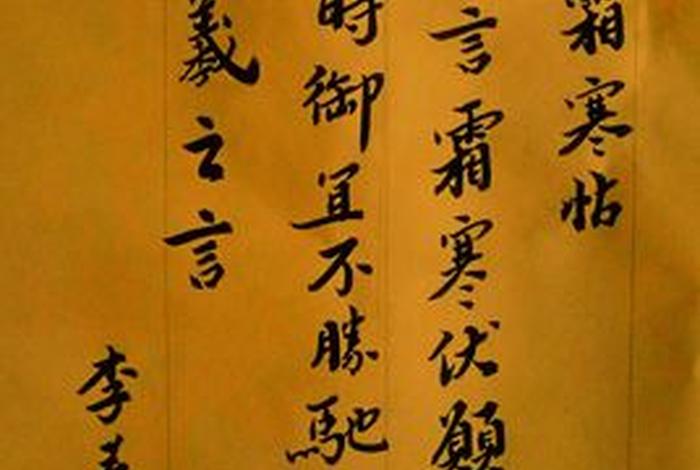 霜寒帖
言霜寒伏願
時御宜不勝馳
羲之言
李